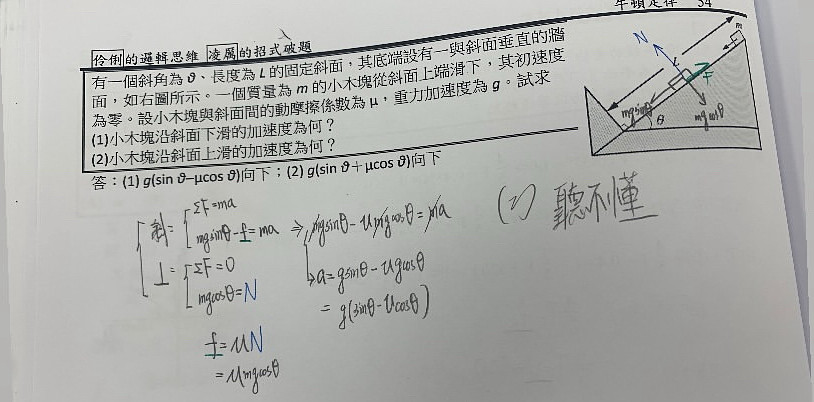 牛頓定律 34
伶俐的邏輯思維 凌厲的招式破題
有一個斜角為 θ、長度為 L 的固定斜面，其底端設有一與斜面垂直的牆
面，如右圖所示。一個質量為 m 的小木塊從斜面上端滑下，其初速度
為零。設小木塊與斜面間的動摩擦係數為 μ，重力加速度為 g。試求
(1)小木塊沿斜面下滑的加速度為何？
(2)小木塊沿斜面上滑的加速度為何？
答：(1) g(sin θ−μcos θ)向下；(2) g(sin θ＋μcos θ)向下
N
m
L
F
mgsinθ
θ
mgcosθ
斜= ΣF=ma
mgsinθ-f=ma ⇒ mgsinθ-umgcosθ=ma
⊥= ΣF=0
mgcosθ=N
a=gsinθ-ugcosθ
=g(sinθ-ucosθ)
f=uN
=umgcosθ
(2) 聽不懂